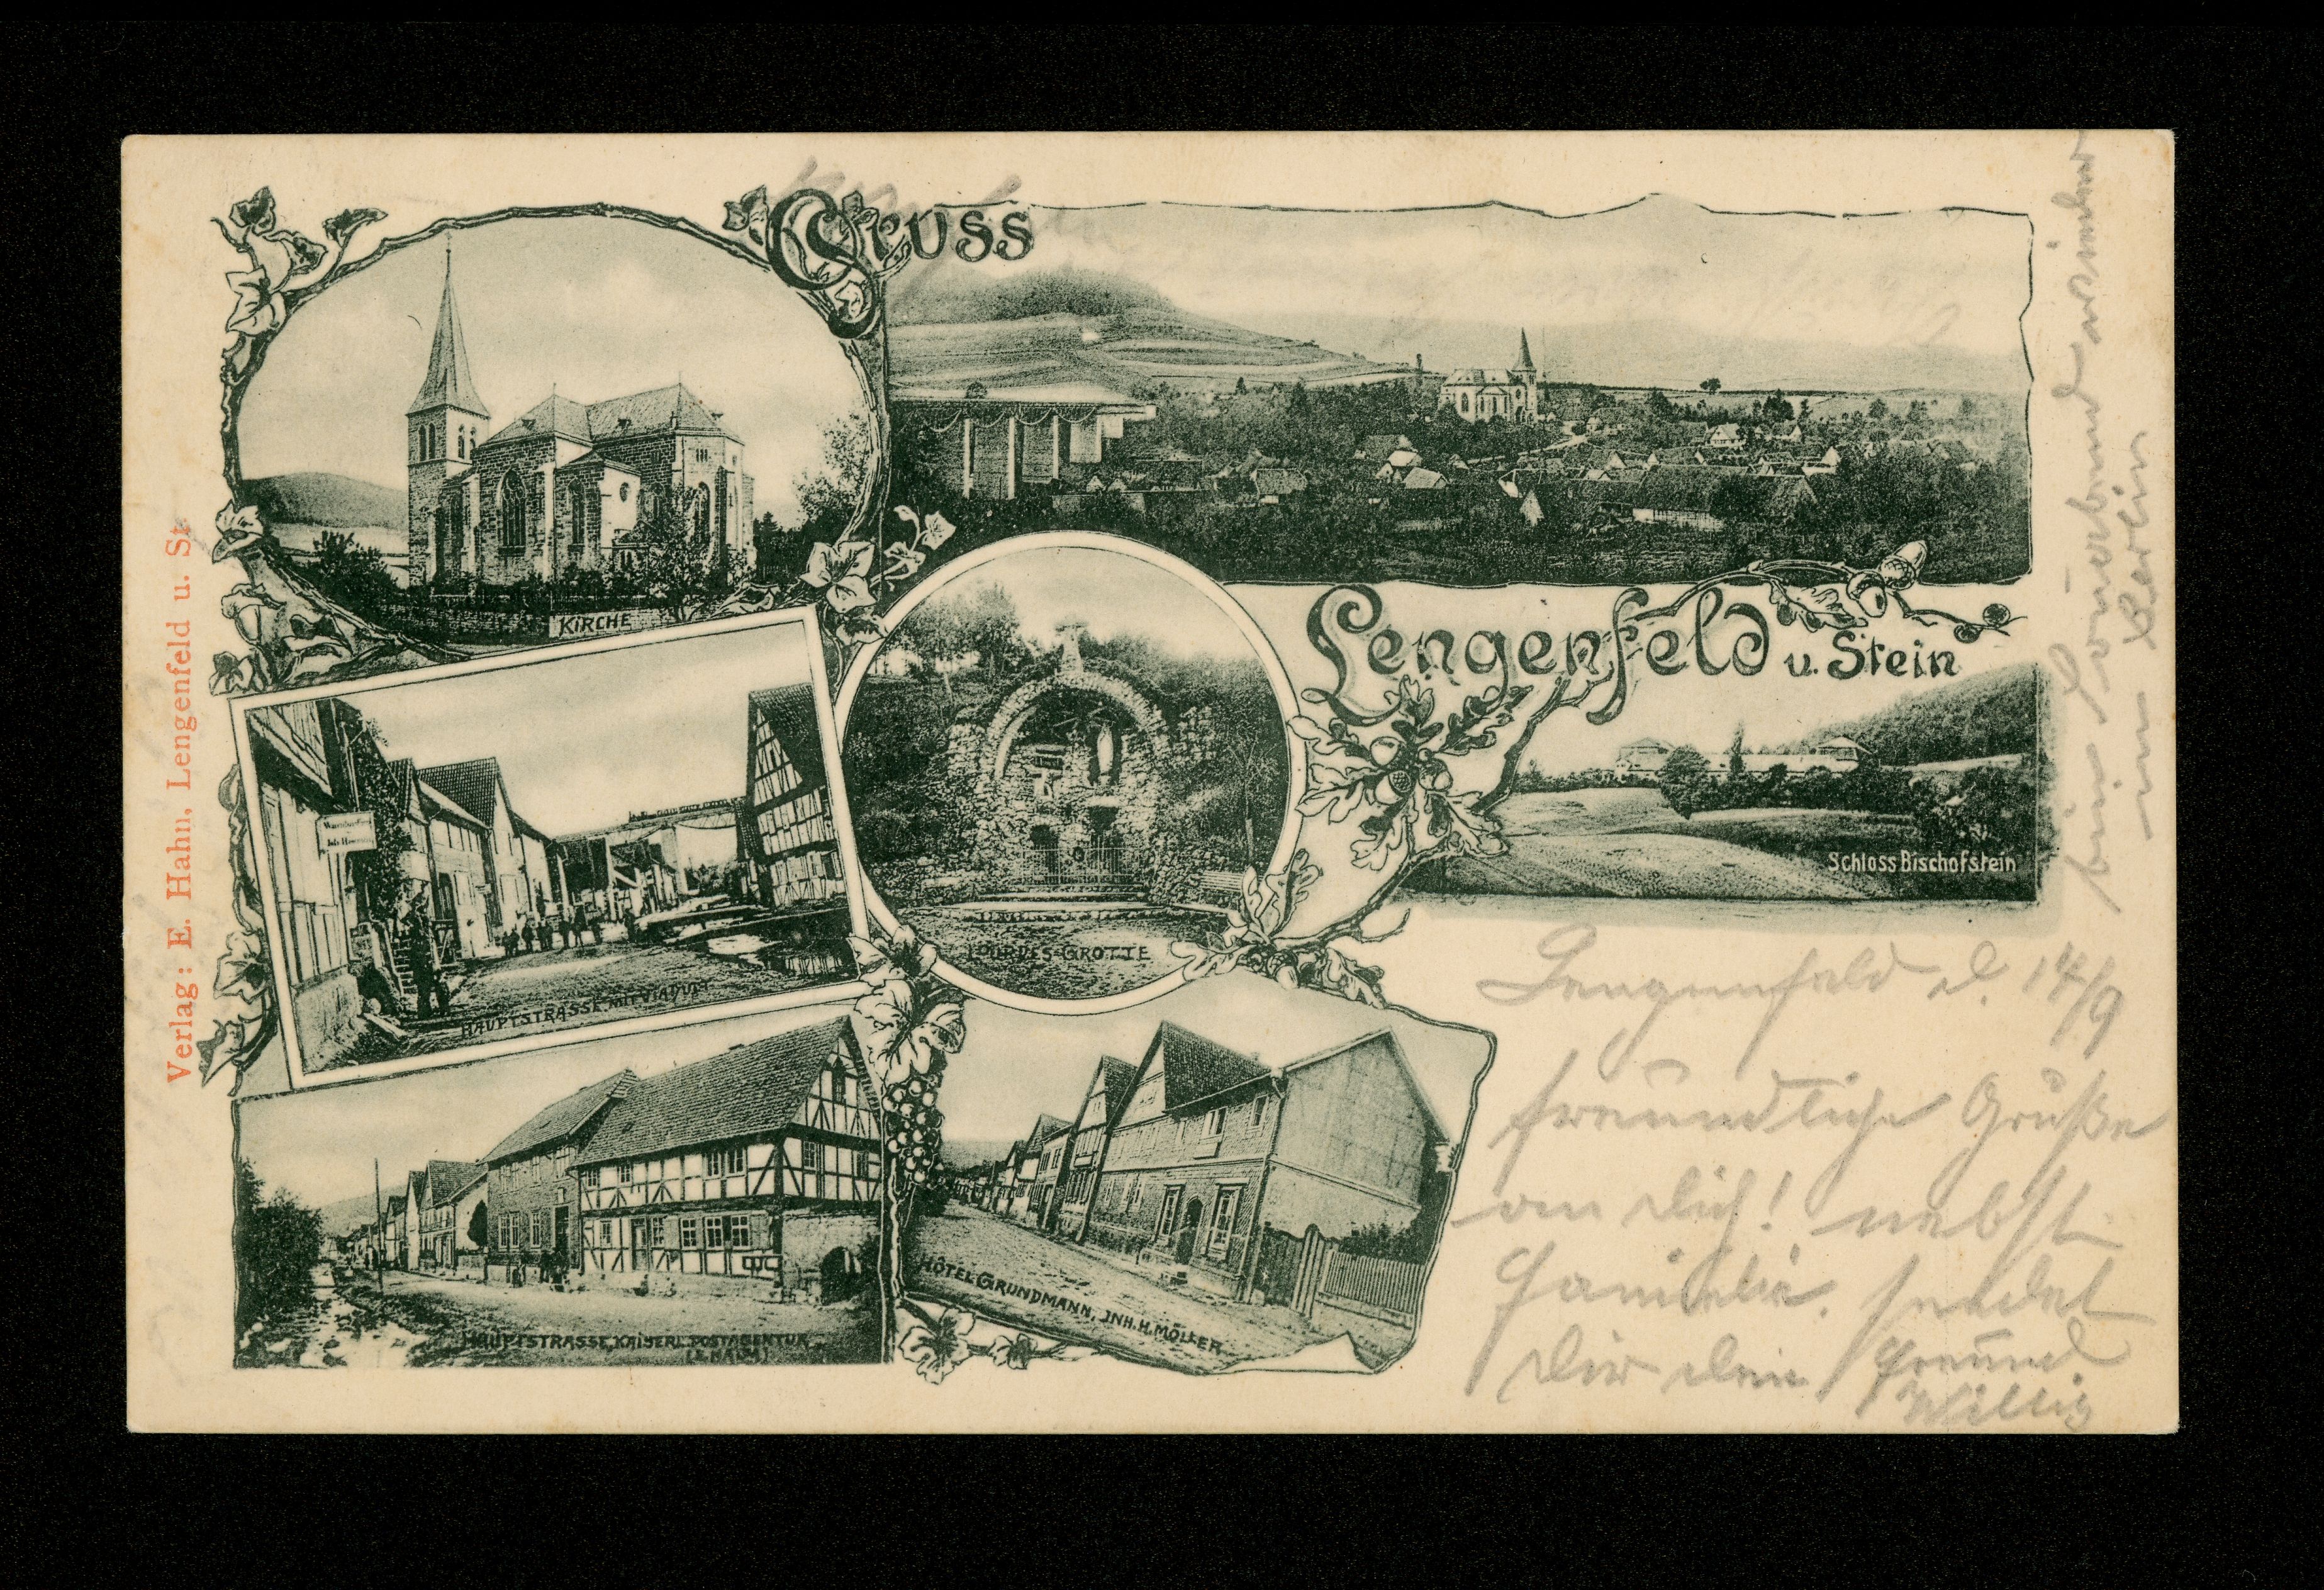 Gruss
KIRCHE
Lengenfeld u. Stein
LOURDES-GROTTE
Schloss Bischofstein
HAUPTSTRASSE MIT VIADUKT
HAUPTSTRASSE, KAISERL. POSTAGENTUR
HÔTEL GRUNDMANN, INH. H. MÖLLER
Verlag: E. Hahn, Lengenfeld u. St.
Lengenfeld d. 14/9
freundliche Grüße
an Dich! nebst
Familie. sendet
Dir Dein Freund
Willy
bin Sonnabend wieder
in Berlin